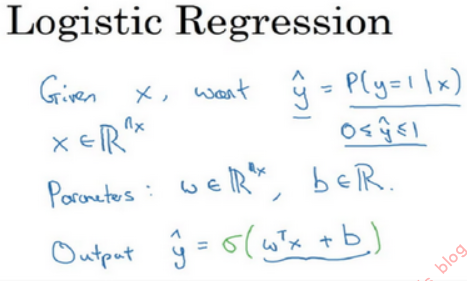 Logistic Regression
Given x, want ŷ = P(y=1|x)
x ∈ ℝⁿˣ 0≤ŷ≤1
Parameters: w ∈ ℝⁿˣ, b ∈ ℝ.
Output ŷ = σ(wᵀx + b)
blog